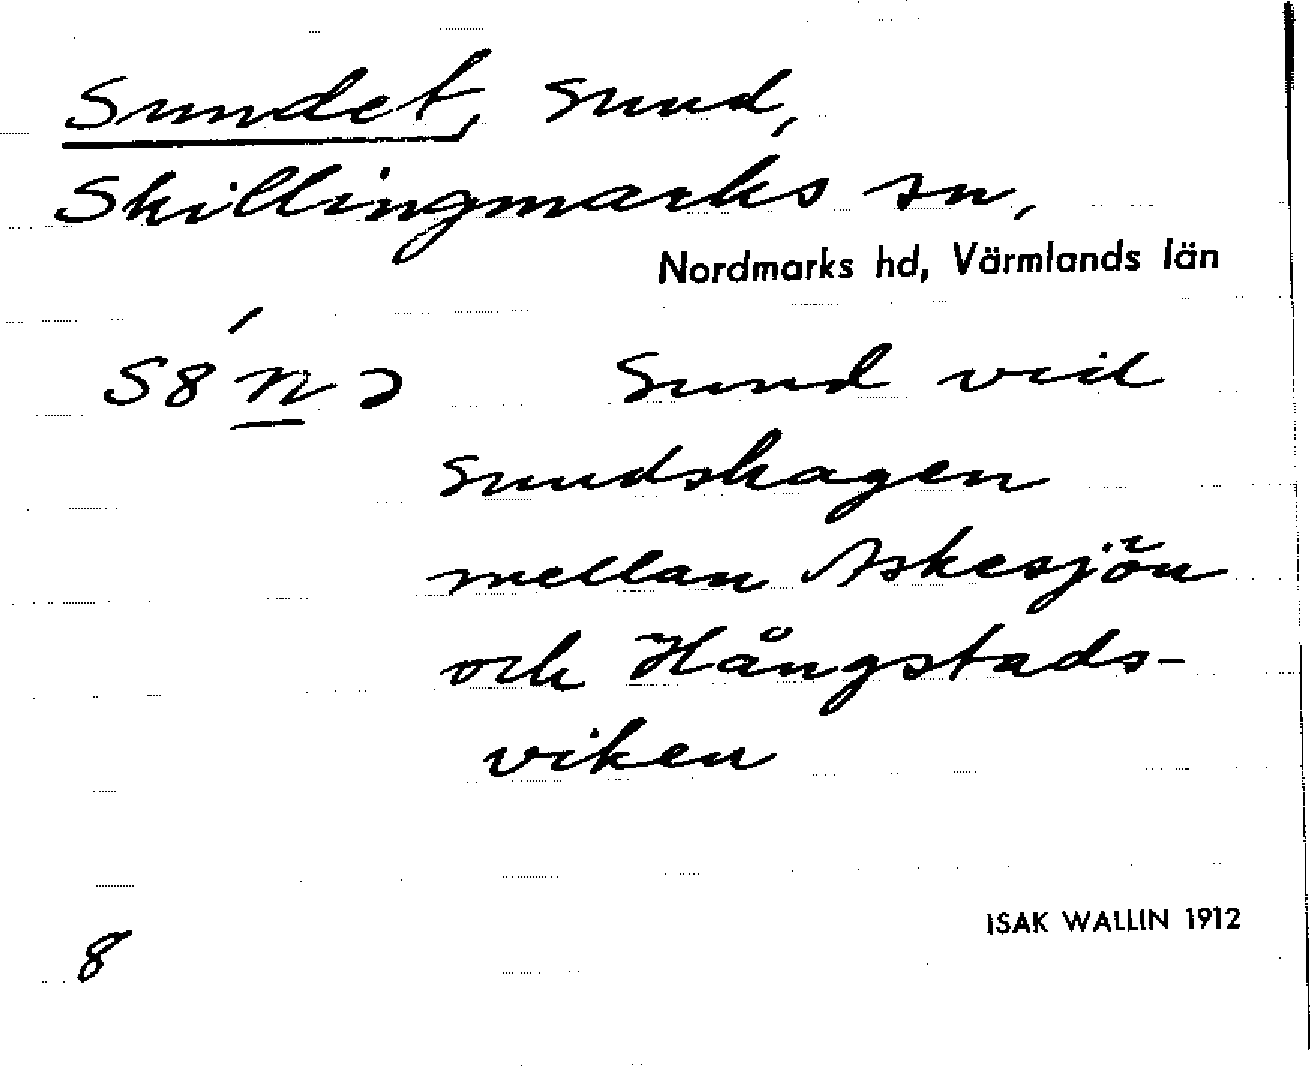 Sundet, sund,
Skillingmarks sn,
Nordmarks hd, Värmlands län
Sund vid
Sundshagen
mellan Askesjön
och Hångstads-
viken
ISAK WALLIN 1912
8